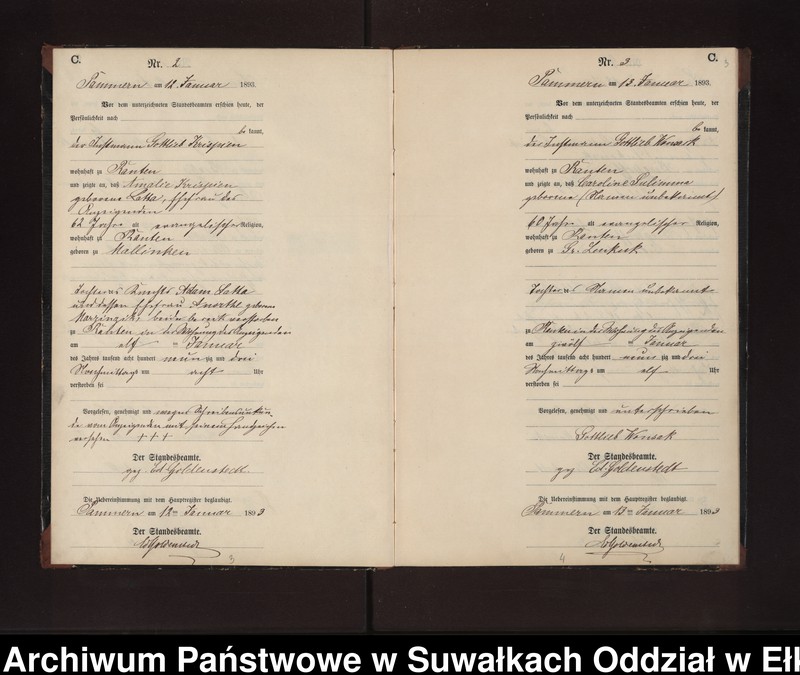 C.
Nr. 2
Sammern am 12. Januar 1893.
Vor dem unterzeichneten Standesbeamten erschien heute, der
Persönlichkeit nach
be kannt,
der Instmann Gottlieb Krispien
wohnhaft zu Ranten
und zeigte an, daß Amalie Krispien
geborene Latta, Ehefrau des
Anzeigenden
62 Jahre alt evangelischer Religion,
wohnhaft zu Ranten
geboren zu Mallinken
Tochter des Knechts Adam Latta
und dessen Ehefrau geborene
beide verstorben
zu Ranten in der Wohnung des Anzeigenden
am elf ten Januar
des Jahres tausend acht hundert neun zig und drei
Vormittags um acht Uhr
verstorben sei
Vorgelesen, genehmigt und wegen Schreibensunkun-
de vom Anzeigenden mit seinem Handzeichen
versehen + + +
Der Standesbeamte.
gez. Ed. Goldenstedt
Die Uebereinstimmung mit dem Hauptregister beglaubigt.
Sammern am 12ten Januar 1893
Der Standesbeamte.
Ed Goldenstedt
3
C.
Nr. 3
3
Sammern am 13. Januar 1893.
Vor dem unterzeichneten Standesbeamten erschien heute, der
Persönlichkeit nach
be kannt,
der Instmann Gottlieb Konsek
wohnhaft zu Ranten
und zeigte an, daß Caroline Sulimma
geborene (Namen unbekannt)
60 Jahre alt evangelischer Religion,
wohnhaft zu Ranten
geboren zu Gr.
Tochter des Namen unbekannt
zu Ranten in der Wohnung des Anzeigenden
am zwölf ten Januar
des Jahres tausend acht hundert neun zig und drei
Vormittags um elf Uhr
verstorben sei
Vorgelesen, genehmigt und unterschrieben
Gottlieb Konsek
Der Standesbeamte.
gez Ed. Goldenstedt
Die Uebereinstimmung mit dem Hauptregister beglaubigt.
Sammern am 13ten Januar 1893
Der Standesbeamte.
Ed Goldenstedt
4
Archiwum Państwowe w Suwałkach Oddział w Ełk